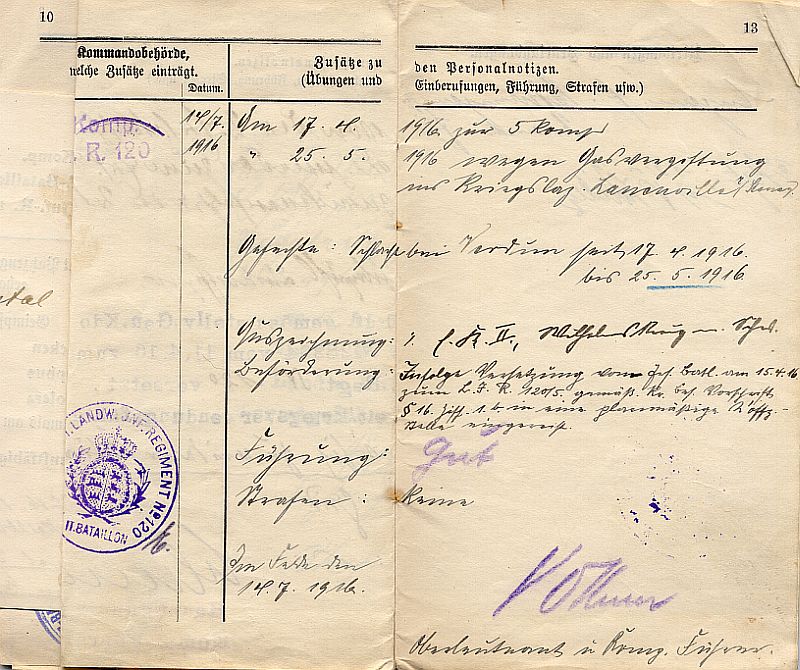 10
13
Kommandobehörde,
welche Zusätze einträgt.
Datum.
Zusätze zu
(Übungen und
den Personalnotizen.
Einberufungen, Führung, Strafen usw.)
Komp.
R. 120
14/7.
1916
Am 17. 4.
1916 zur 5 Komp.
" 25. 5.
1916 wegen Gasvergiftung
ins Kriegslaz.
Gefechte: Schlacht bei Verdun seit 17. 4. 1916.
bis 25. 5. 1916
Auszeichnung:
E. K. II., Wilhelmskreuz m. Schw.
Beförderung:
Infolge Versetzung vom Batl. am 15.4.16
zum L. J. R. 120/5. gemäß Kr. Bes. Vorschrift
§ 16. Ziff. 1. b. in eine planmäßige
Stelle eingereiht.
LANDW. INF. REGIMENT No 120
II. BATAILLON
Führung:
Gut
Strafen:
Keine
Im Felde den
14. 7. 1916.
Oberleutnant u Komp. Führer.
tal